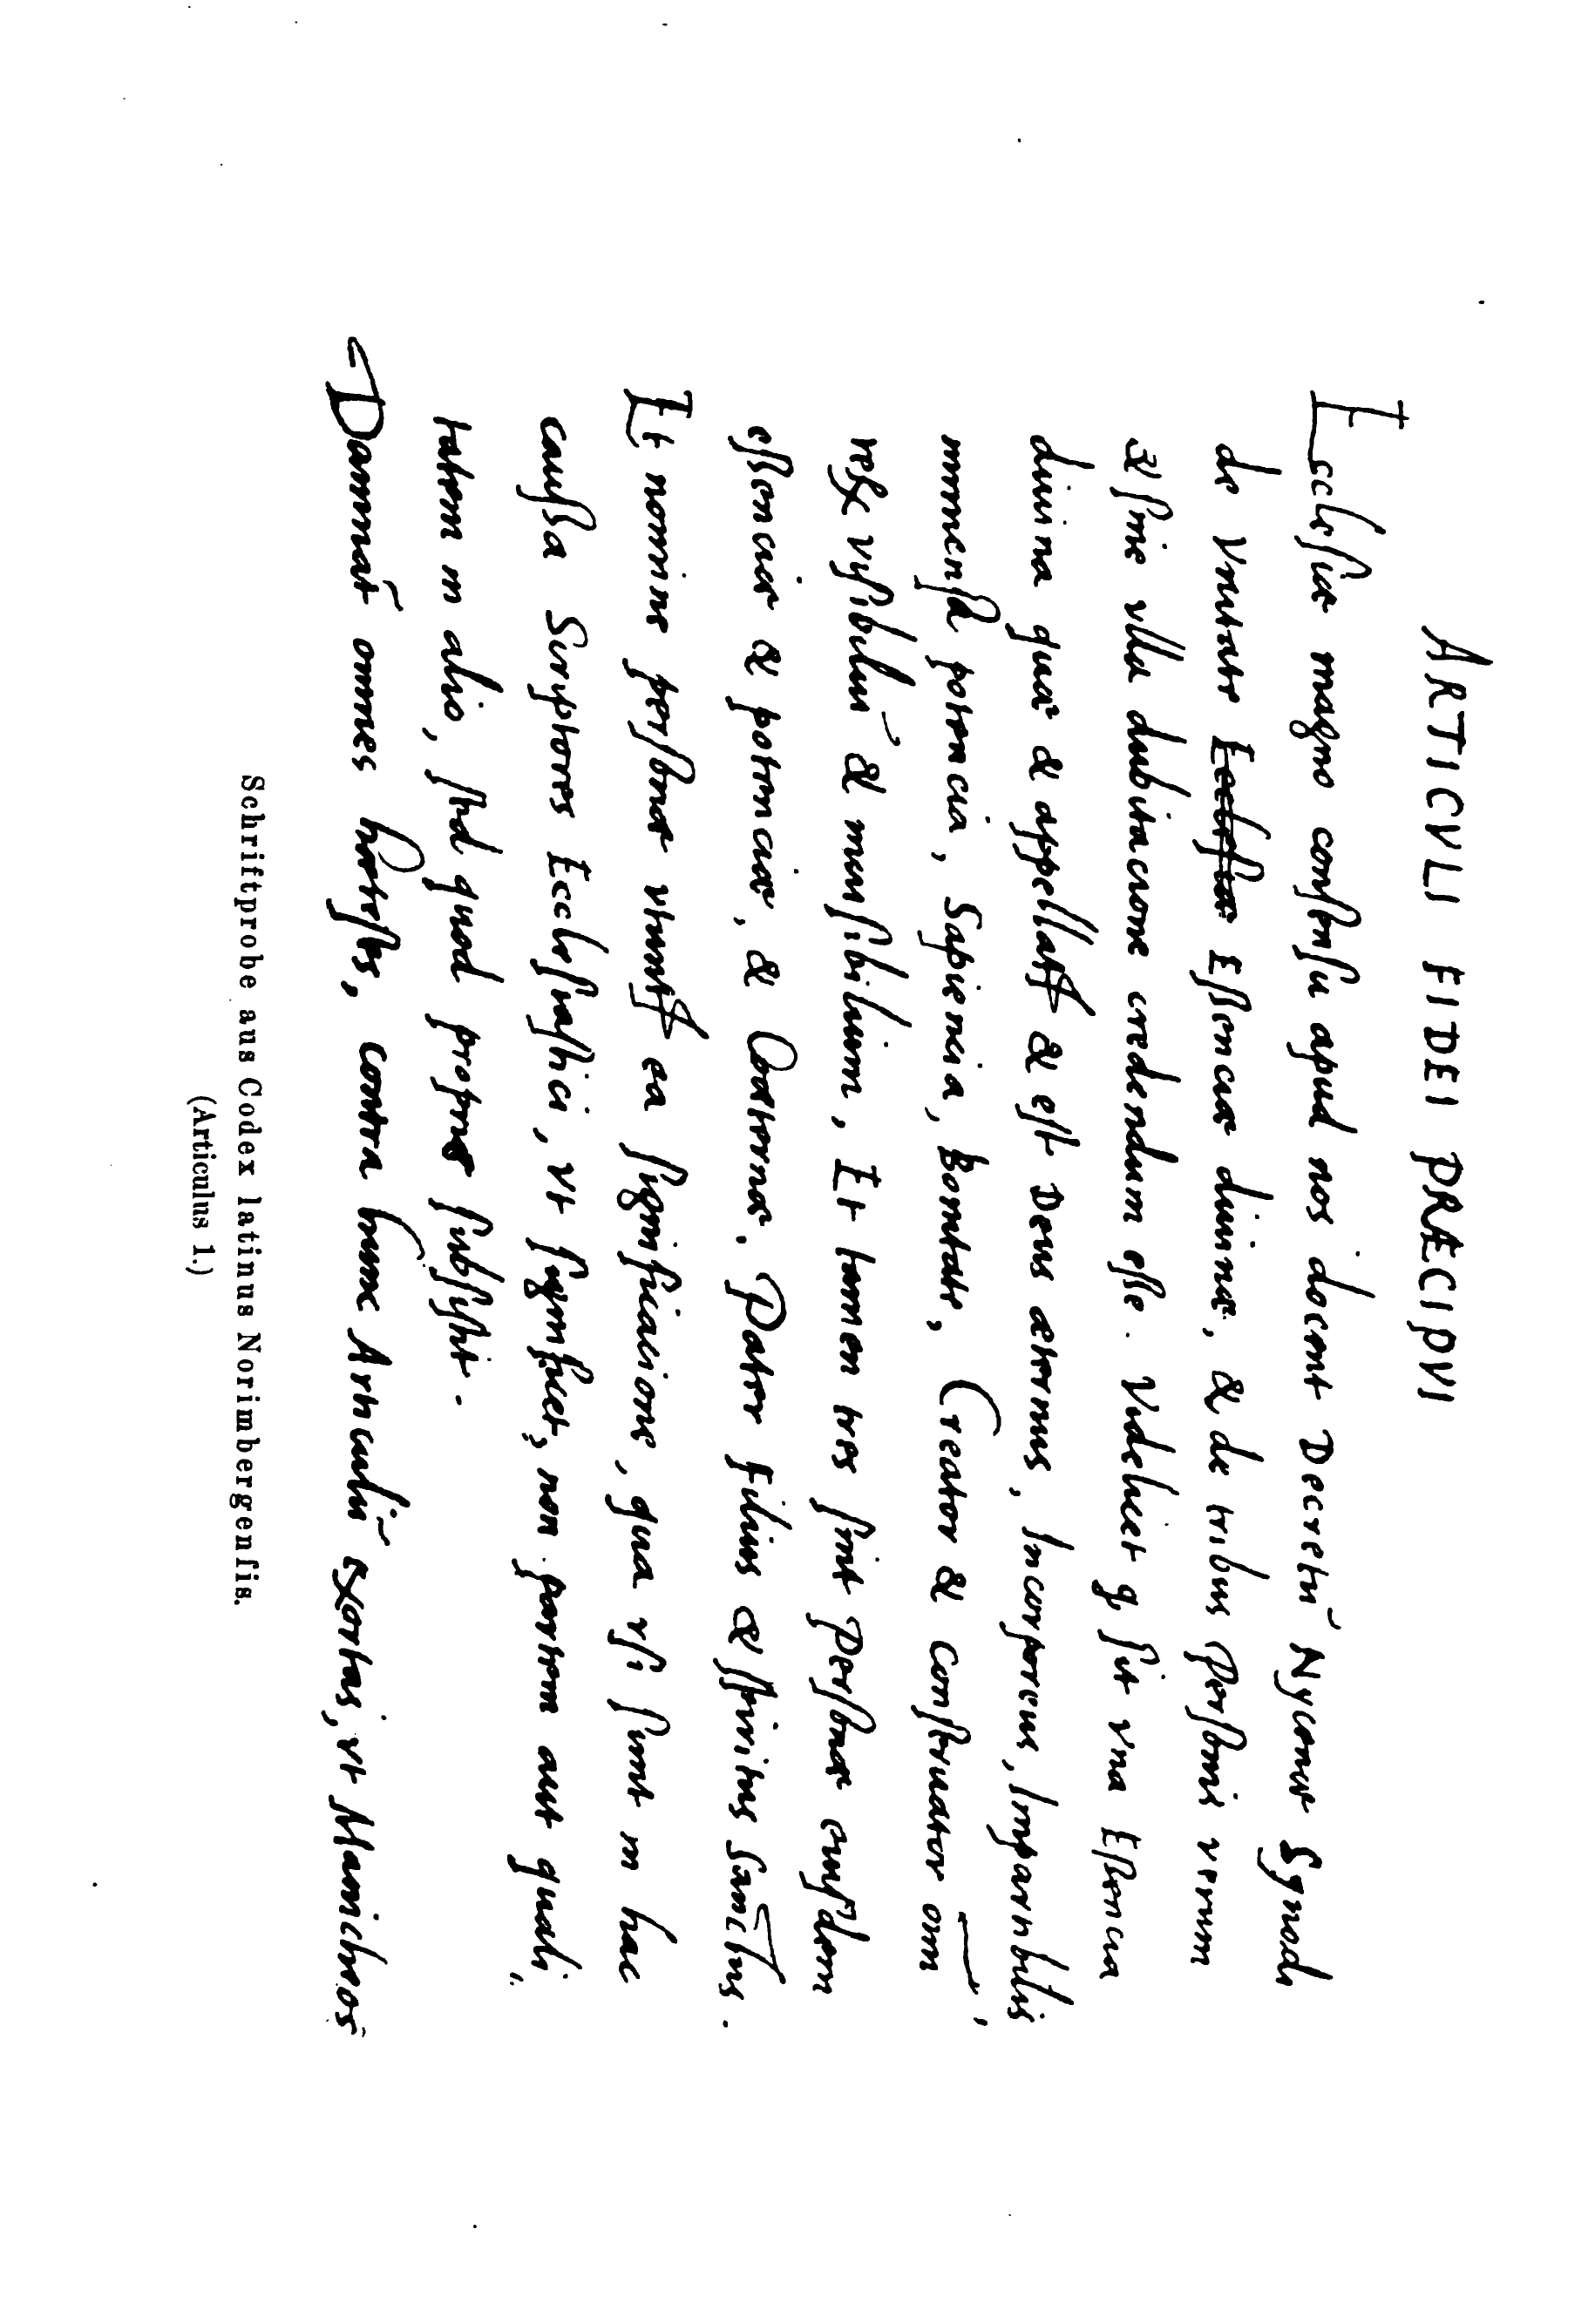 ARTICVLI FIDEI PRÆCIPVI
Eccleſiæ magno conſenſu apud nos docent Decretū Nycenæ Synodi
de Vnitate Eccleſiæ Eſſenciæ diuinæ, & de tribus Perſonis verum
& ſine vlla dubitacione credendum eſſe. Videlicet qͅ ſit vna Eſſencia
diuina quæ & appellatꝭ & eſt Deus æternus, Incorporeus, Impartibilis
immenſa potencia, Sapiencia, Bonitate, Creator & Conſeruator omn̄
reꝝ viſibiliū & inuiſibilium, Et tamen tres ſint Perſonæ eiuſdem
eſſenciæ & potenciæ, & Coæternæ. Pater Filius & ſpiritus Sanctus.
Et nomine perſonæ vtuntꝭ ea ſignificacione, qua vſi ſunt in hac
cauſſa Scriptores Eccleſiaſtici, vt ſignificet, non partem aut quali,,
tatem in alio, ſed quod proprie ſubſiſtit.
Damnāt omnes hæreſes, contra hunc Articulū exortas, vt Manicheos
Schriftprobe aus Codex latinus Norimbergenſis.
(Articulus 1.)